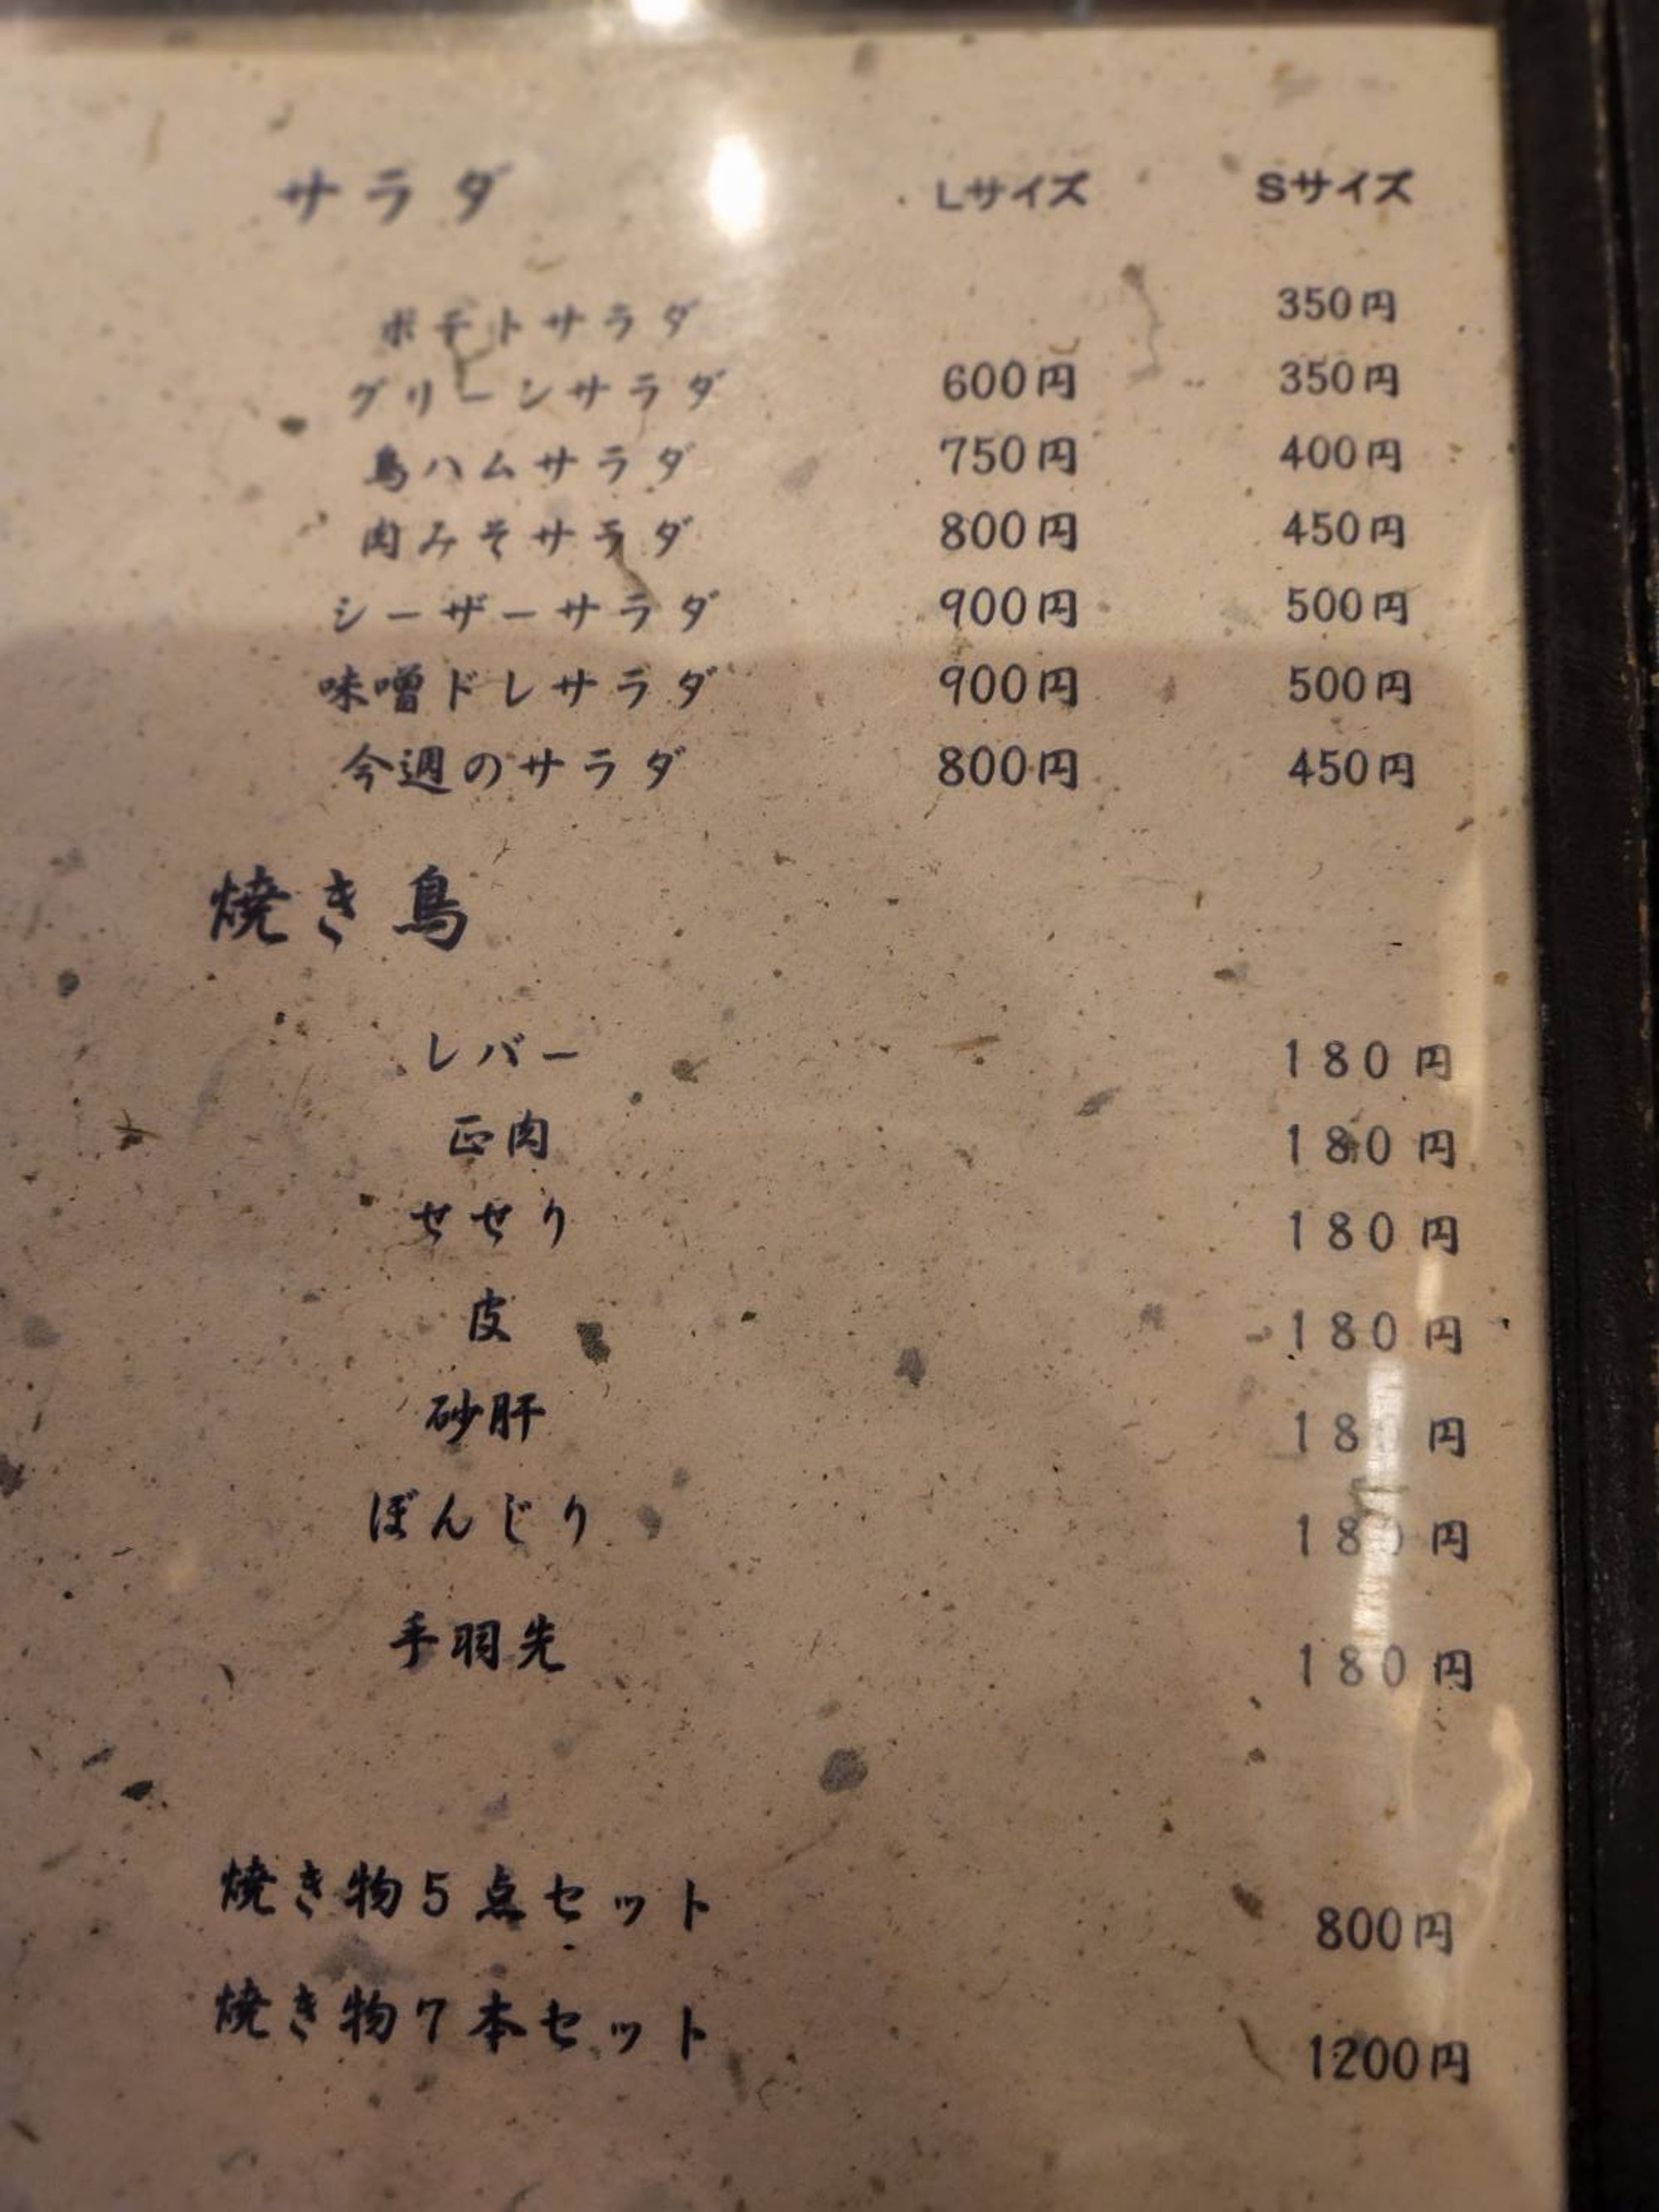 サラダ Lサイズ Sサイズ
ポテトサラダ 350円
グリーンサラダ 600円 350円
鳥ハムサラダ 750円 400円
肉みそサラダ 800円 450円
シーザーサラダ 900円 500円
味噌ドレサラダ 900円 500円
今週のサラダ 800円 450円
焼き鳥
レバー 180円
正肉 180円
せせり 180円
皮 180円
砂肝 180円
ぼんじり 180円
手羽先 180円
焼き物5点セット 800円
焼き物7本セット 1200円